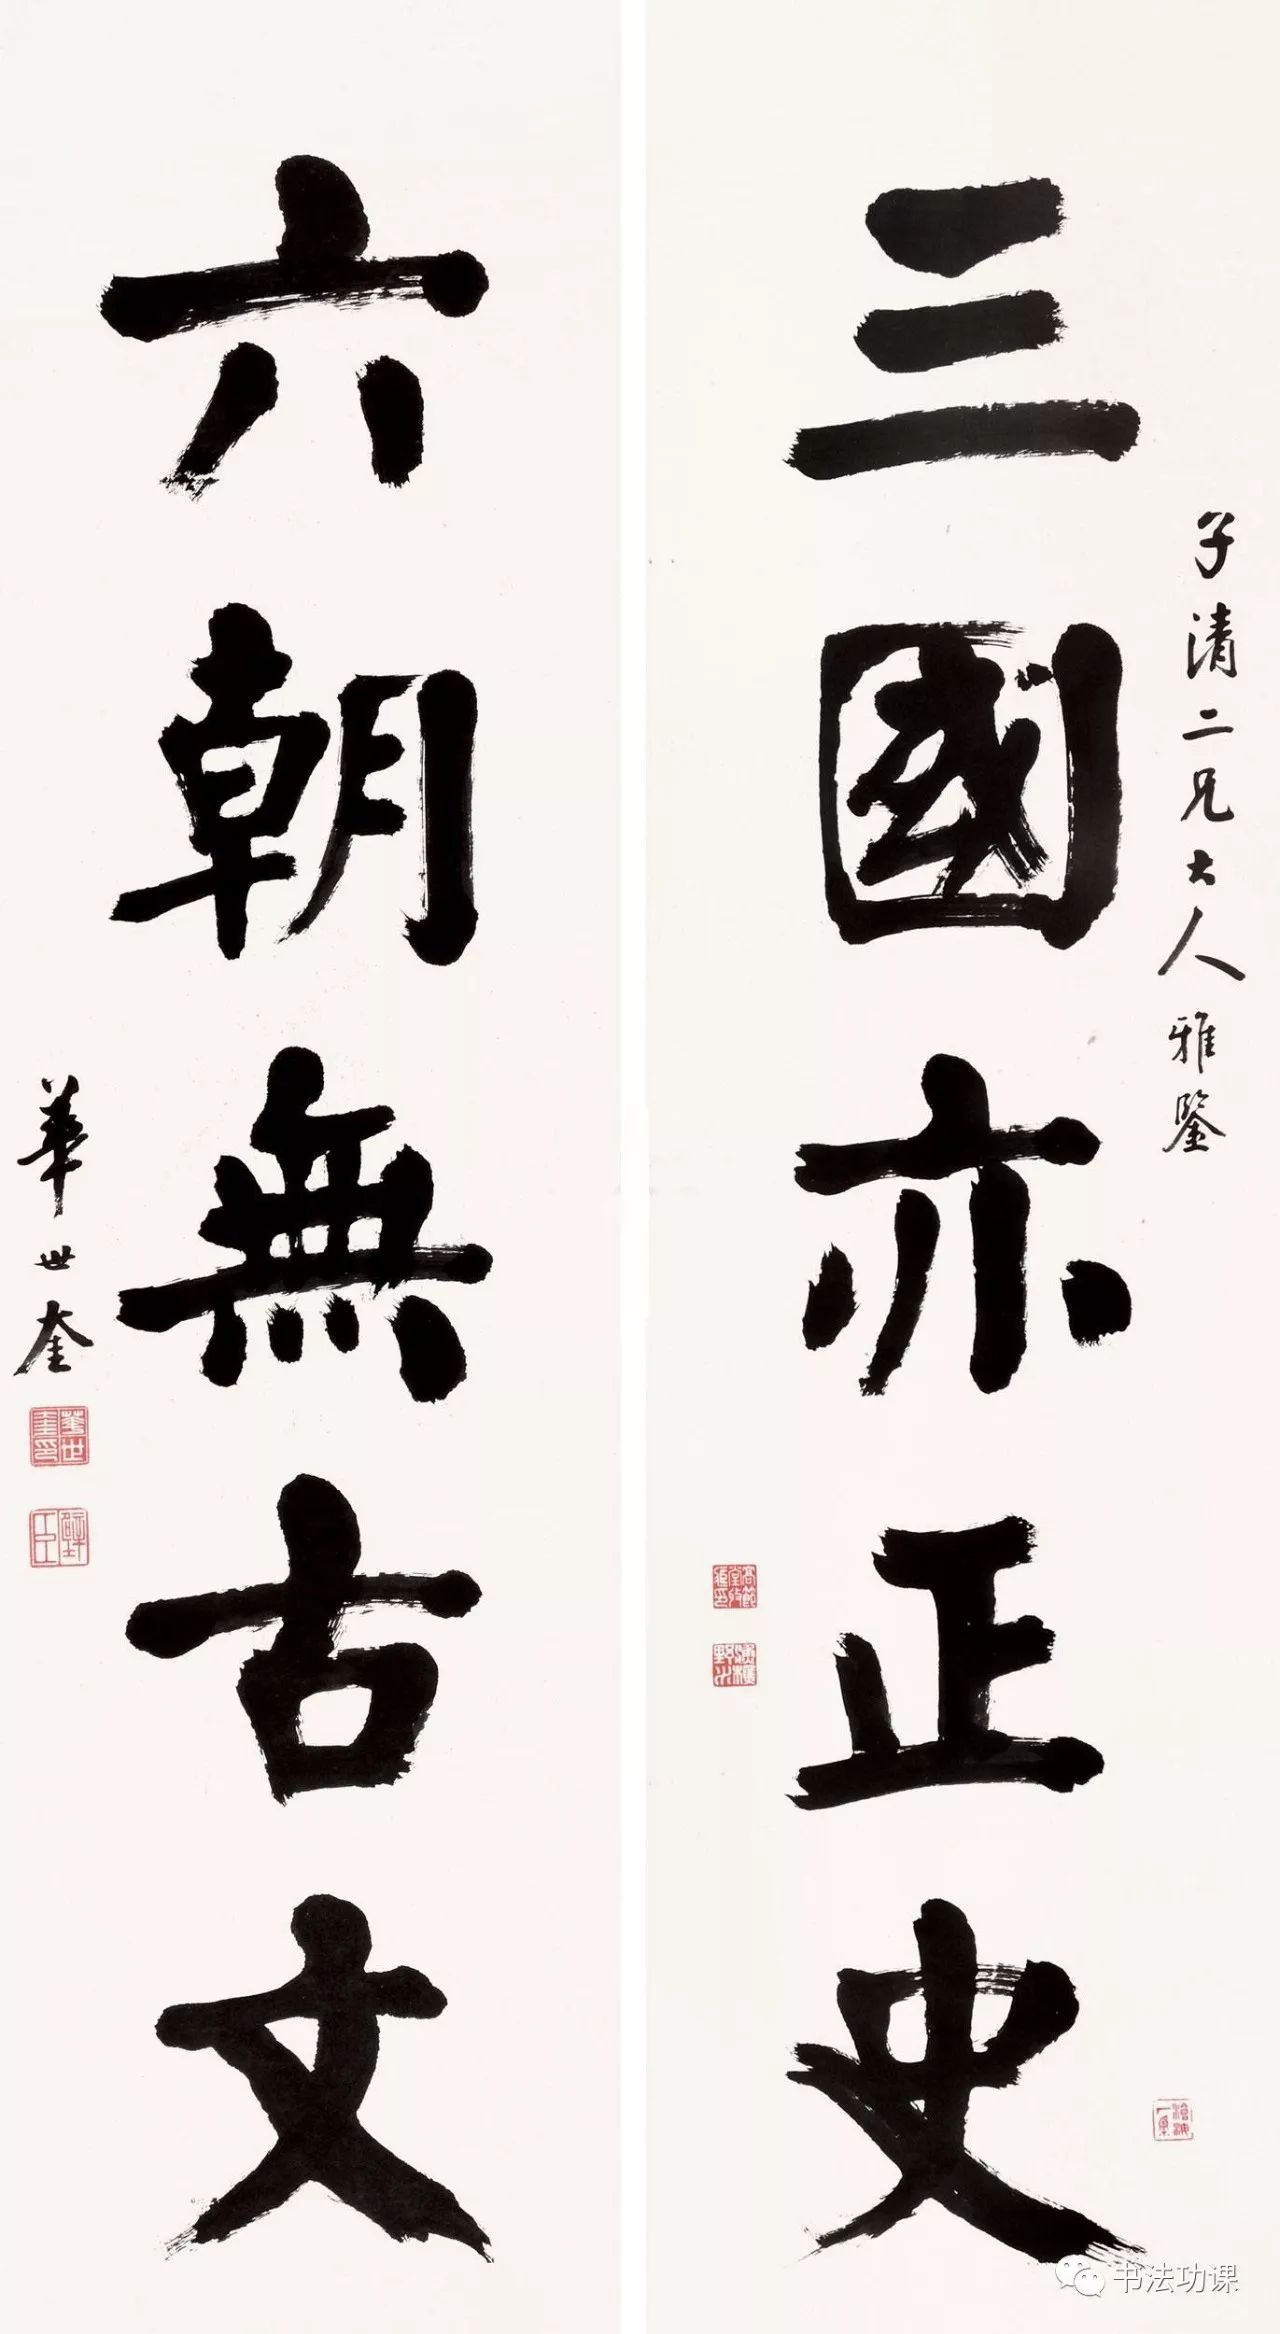 三國亦正史
子清二兄大人雅鑒
六朝無古文
華世奎
華世奎印
书法功课